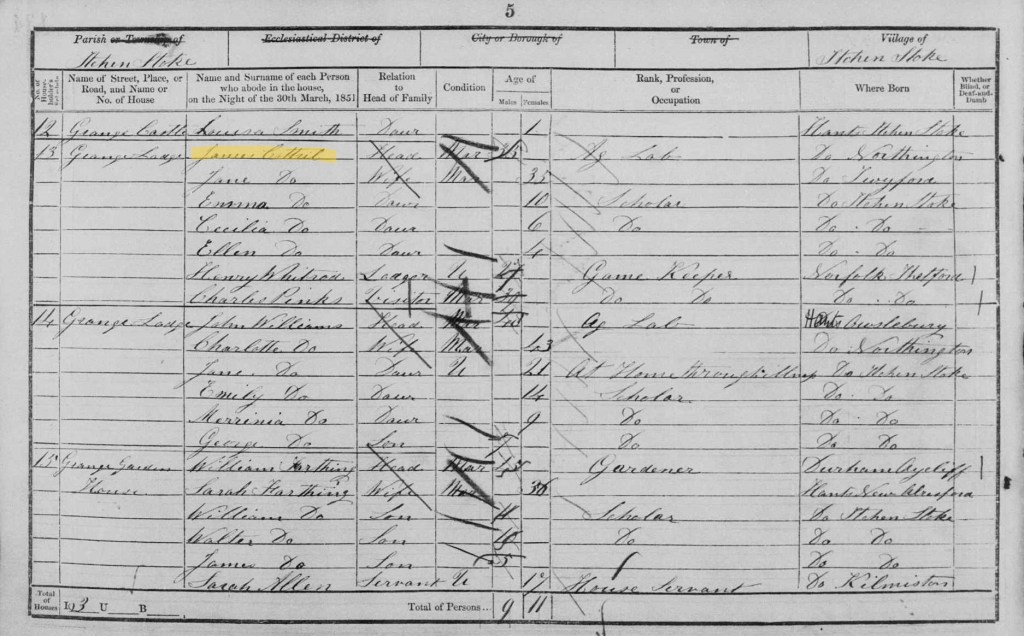 5
Parish or Township of Ecclesiastical District of City or Borough of Town of Village of
Itchen Stoke Itchen Stoke
No. of House-holder's Schedule Name of Street, Place, or Road, and Name or No. of House Name and Surname of each Person who abode in the house, on the Night of the 30th March, 1851 Relation to Head of Family Condition Age of Males Females Rank, Profession, or Occupation Where Born Whether Blind, or Deaf-and-Dumb
12 Grange Castle Louisa Smith Daur 1 Hants Itchen Stoke
13 Grange Lodge James Head Mar 35 Ag Lab Do Northington
Jane Do Wife Mar 35 Do Twyford
Emma Do Daur 10 Scholar Do Itchen Stoke
Cecilia Do Daur 6 Do Do Do
Ellen Do Daur 4 Do Do
Henry Lodger U Game Keeper Norfolk Thetford
Charles Pinks Visitor Mar Do Do Do Do
14 Grange Lodge John Williams Head Mar 45 Ag Lab Hants Owslebury
Charlotte Do Wife Mar 43 Do Northington
Jane Do Daur U 21 At Home through Do Itchen Stoke
Emily Do Daur 14 Scholar Do Do
Merrinia Do Daur 9 Do Do Do
George Do Son Do Do Do
15 Grange Garden William Farthing Head Mar 45 Gardener Durham Aycliff
House Sarah Farthing Wife Mar 36 Hants New Alresford
William Do Son 11 Scholar Do Itchen Stoke
Walter Do Son 10 Do Do Do
James Do Son 5 Do Do
Sarah Allen Servant U 17 House Servant Do Kilmiston
Total of Houses I 3 U B Total of Persons... 9 11